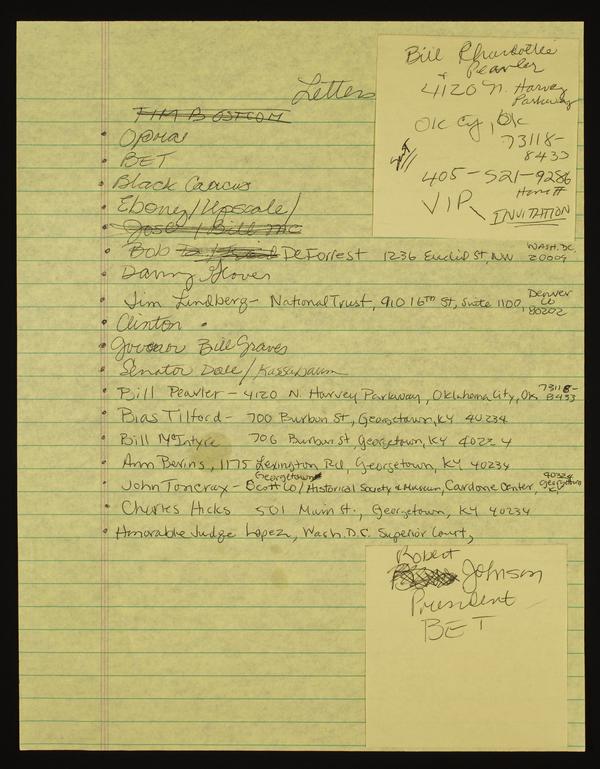 Letters
TIM BOSTCOM
• Oprha
• BET
• Black Caucus
• Ebony/Upscale/
• Jose / Bill Inc
• Bob DeForrest 1236 Euclid St, NW WASH. DC. 20009
• Danny Glover
• Jim Lindberg - National Trust, 910 16TH St, Suite 1100, Denver Co 80202
• Clinton •
• Governor Bill Graves
• Senator Dole/Kassabaum
• Bill Pearler - 4120 N. Harvey Parkway, Oklahoma City, OK 73118-8433
• Bias Tilford - 700 Burbun St, Georgetown, KY 40234
• Bill McIntyre 706 Burbun St Georgetown, KY 40234
• Ann Bevins, 1175 Lexington Rd, Georgetown, KY 40234
• John Toncray - Georgetown Scott Co/Historical Society & Museum, Cardome Center, Georgetown KY 40324
• Charles Hicks 501 Main St., Georgetown, KY 40234
• Honorable Judge Lopez, Wash. D.C. Superior Court,
Bill &
Pearler
4120 N. Harvey
Parkway
Ok Cy, Ok
73118-
8433
405-521-9286
Home #
VIP
INVITATION
Robert
Johnson
President
BET